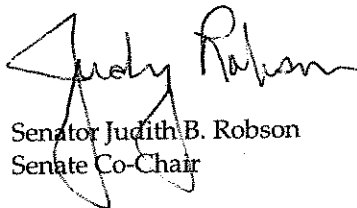 Judy Robson
Senator Judith B. Robson
Senate Co-Chair